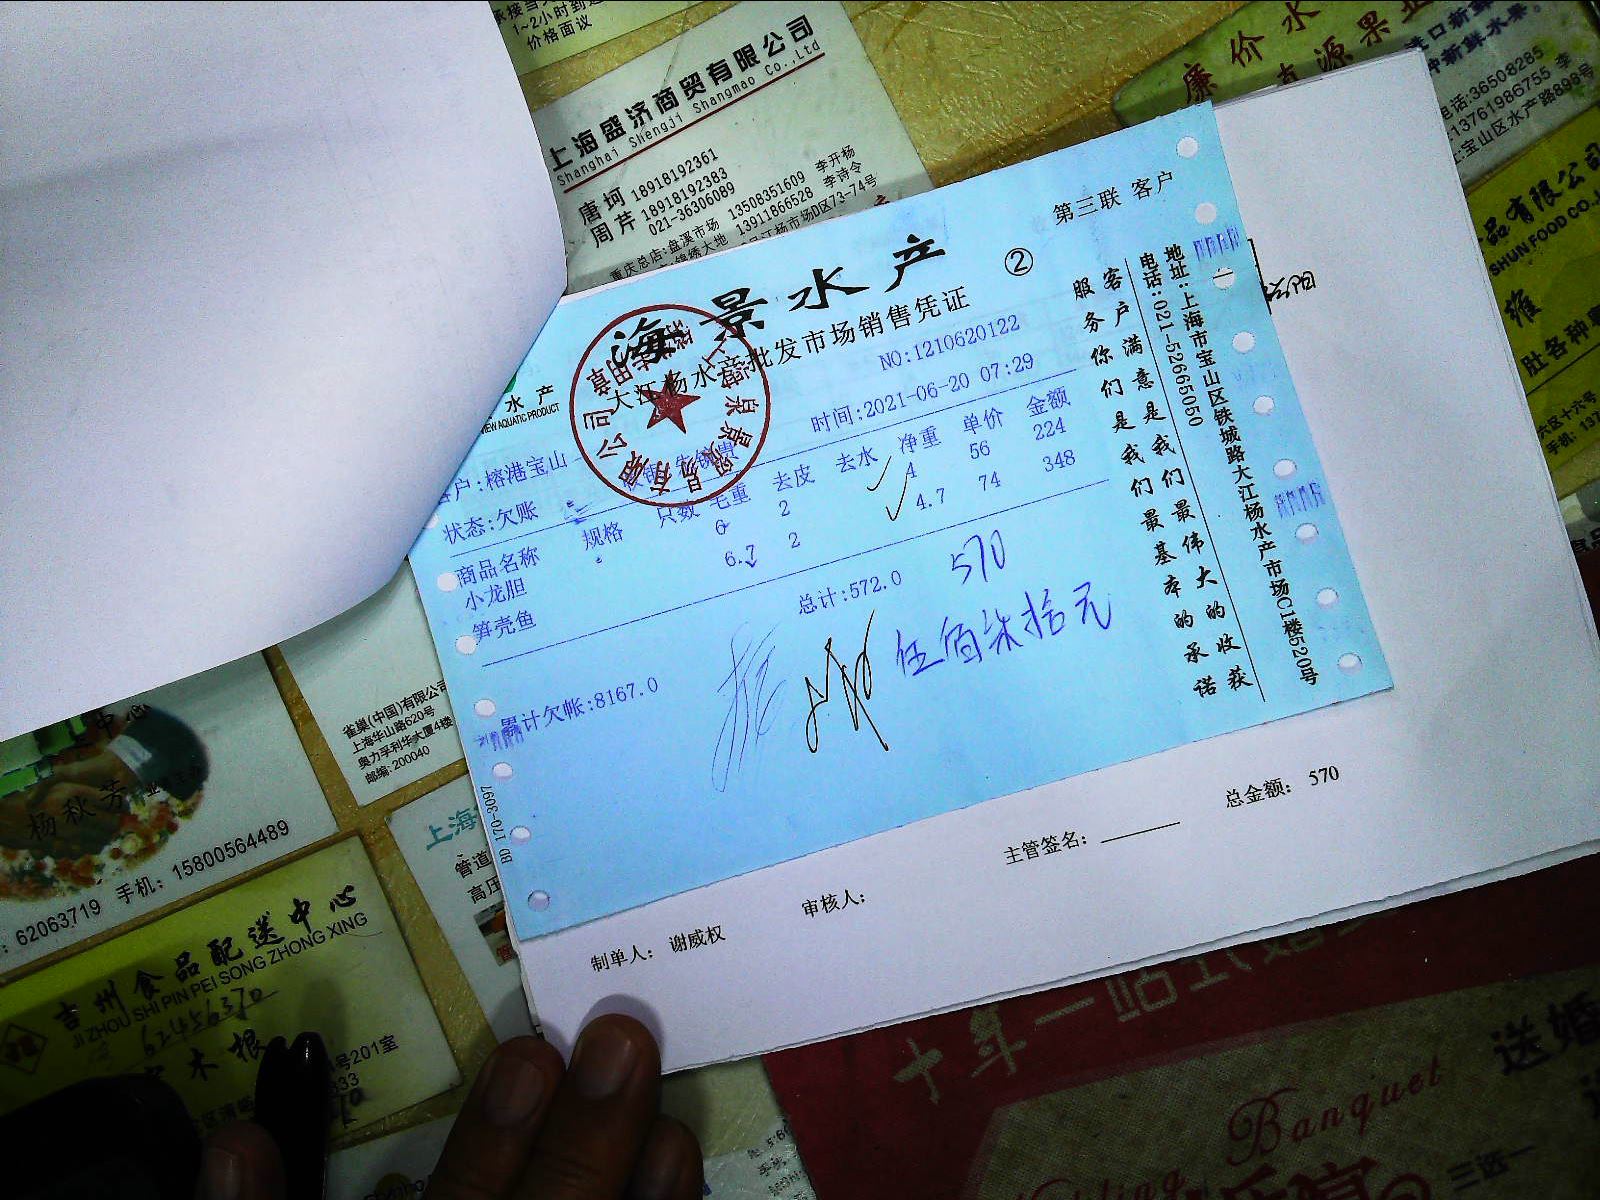 1~2小时到达
价格面议
上海盛济商贸有限公司
Shanghai Shengji Shangmao Co.,Ltd
唐坷 18918192361
周芹 18918192383
021-36306089
重庆总店:盘溪市场 13508351609 李开杨
锦绣大地 13911866528 李诗令
江杨市场D区73-74号
廉价水
源果业
进口新鲜
种新鲜水果。
电话:36508285
13761986755 李
宝山区水产路898号
品有限公司
SHUN FOOD CO.,
维
肚各种
六区十六号
手机: 137
第三联 客户
海景水产
②
大江杨水产批发市场销售凭证
NO:1210620122
水产
VIEW AQUATIC PRODUCT
时间:2021-06-20 07:29
客户:榕港宝山
状态:欠账
商品名称 规格 只数 毛重 去皮 去水 净重 单价 金额
小龙胆 6 2 4 56 224
笋壳鱼 6.7 2 4.7 74 348
总计:572.0 570
伍佰柒拾元
累计欠帐:8167.0
客户满意是我们最伟大的收获
服务你们是我们最基本的承诺
地址:上海市宝山区铁城路大江杨水产市场C1楼520号
电话:021-52665050
总金额: 570
主管签名:
审核人:
制单人: 谢威权
雀巢(中国)有限公司
上海华山路620号
奥力孚利华大厦4楼
邮编:200040
杨秋芳
62063719 手机: 15800564489
上海
管道
高压
吉州食品配送中心
JI ZHOU SHI PIN PEI SONG ZHONG XING
62456370
木根
号201室
十年一
Banquet
送婚
三选一